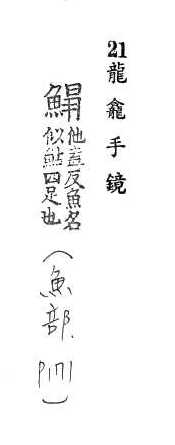 21龍龕手鏡
他盍反魚名
似鮎四足也
(魚部.
P171)